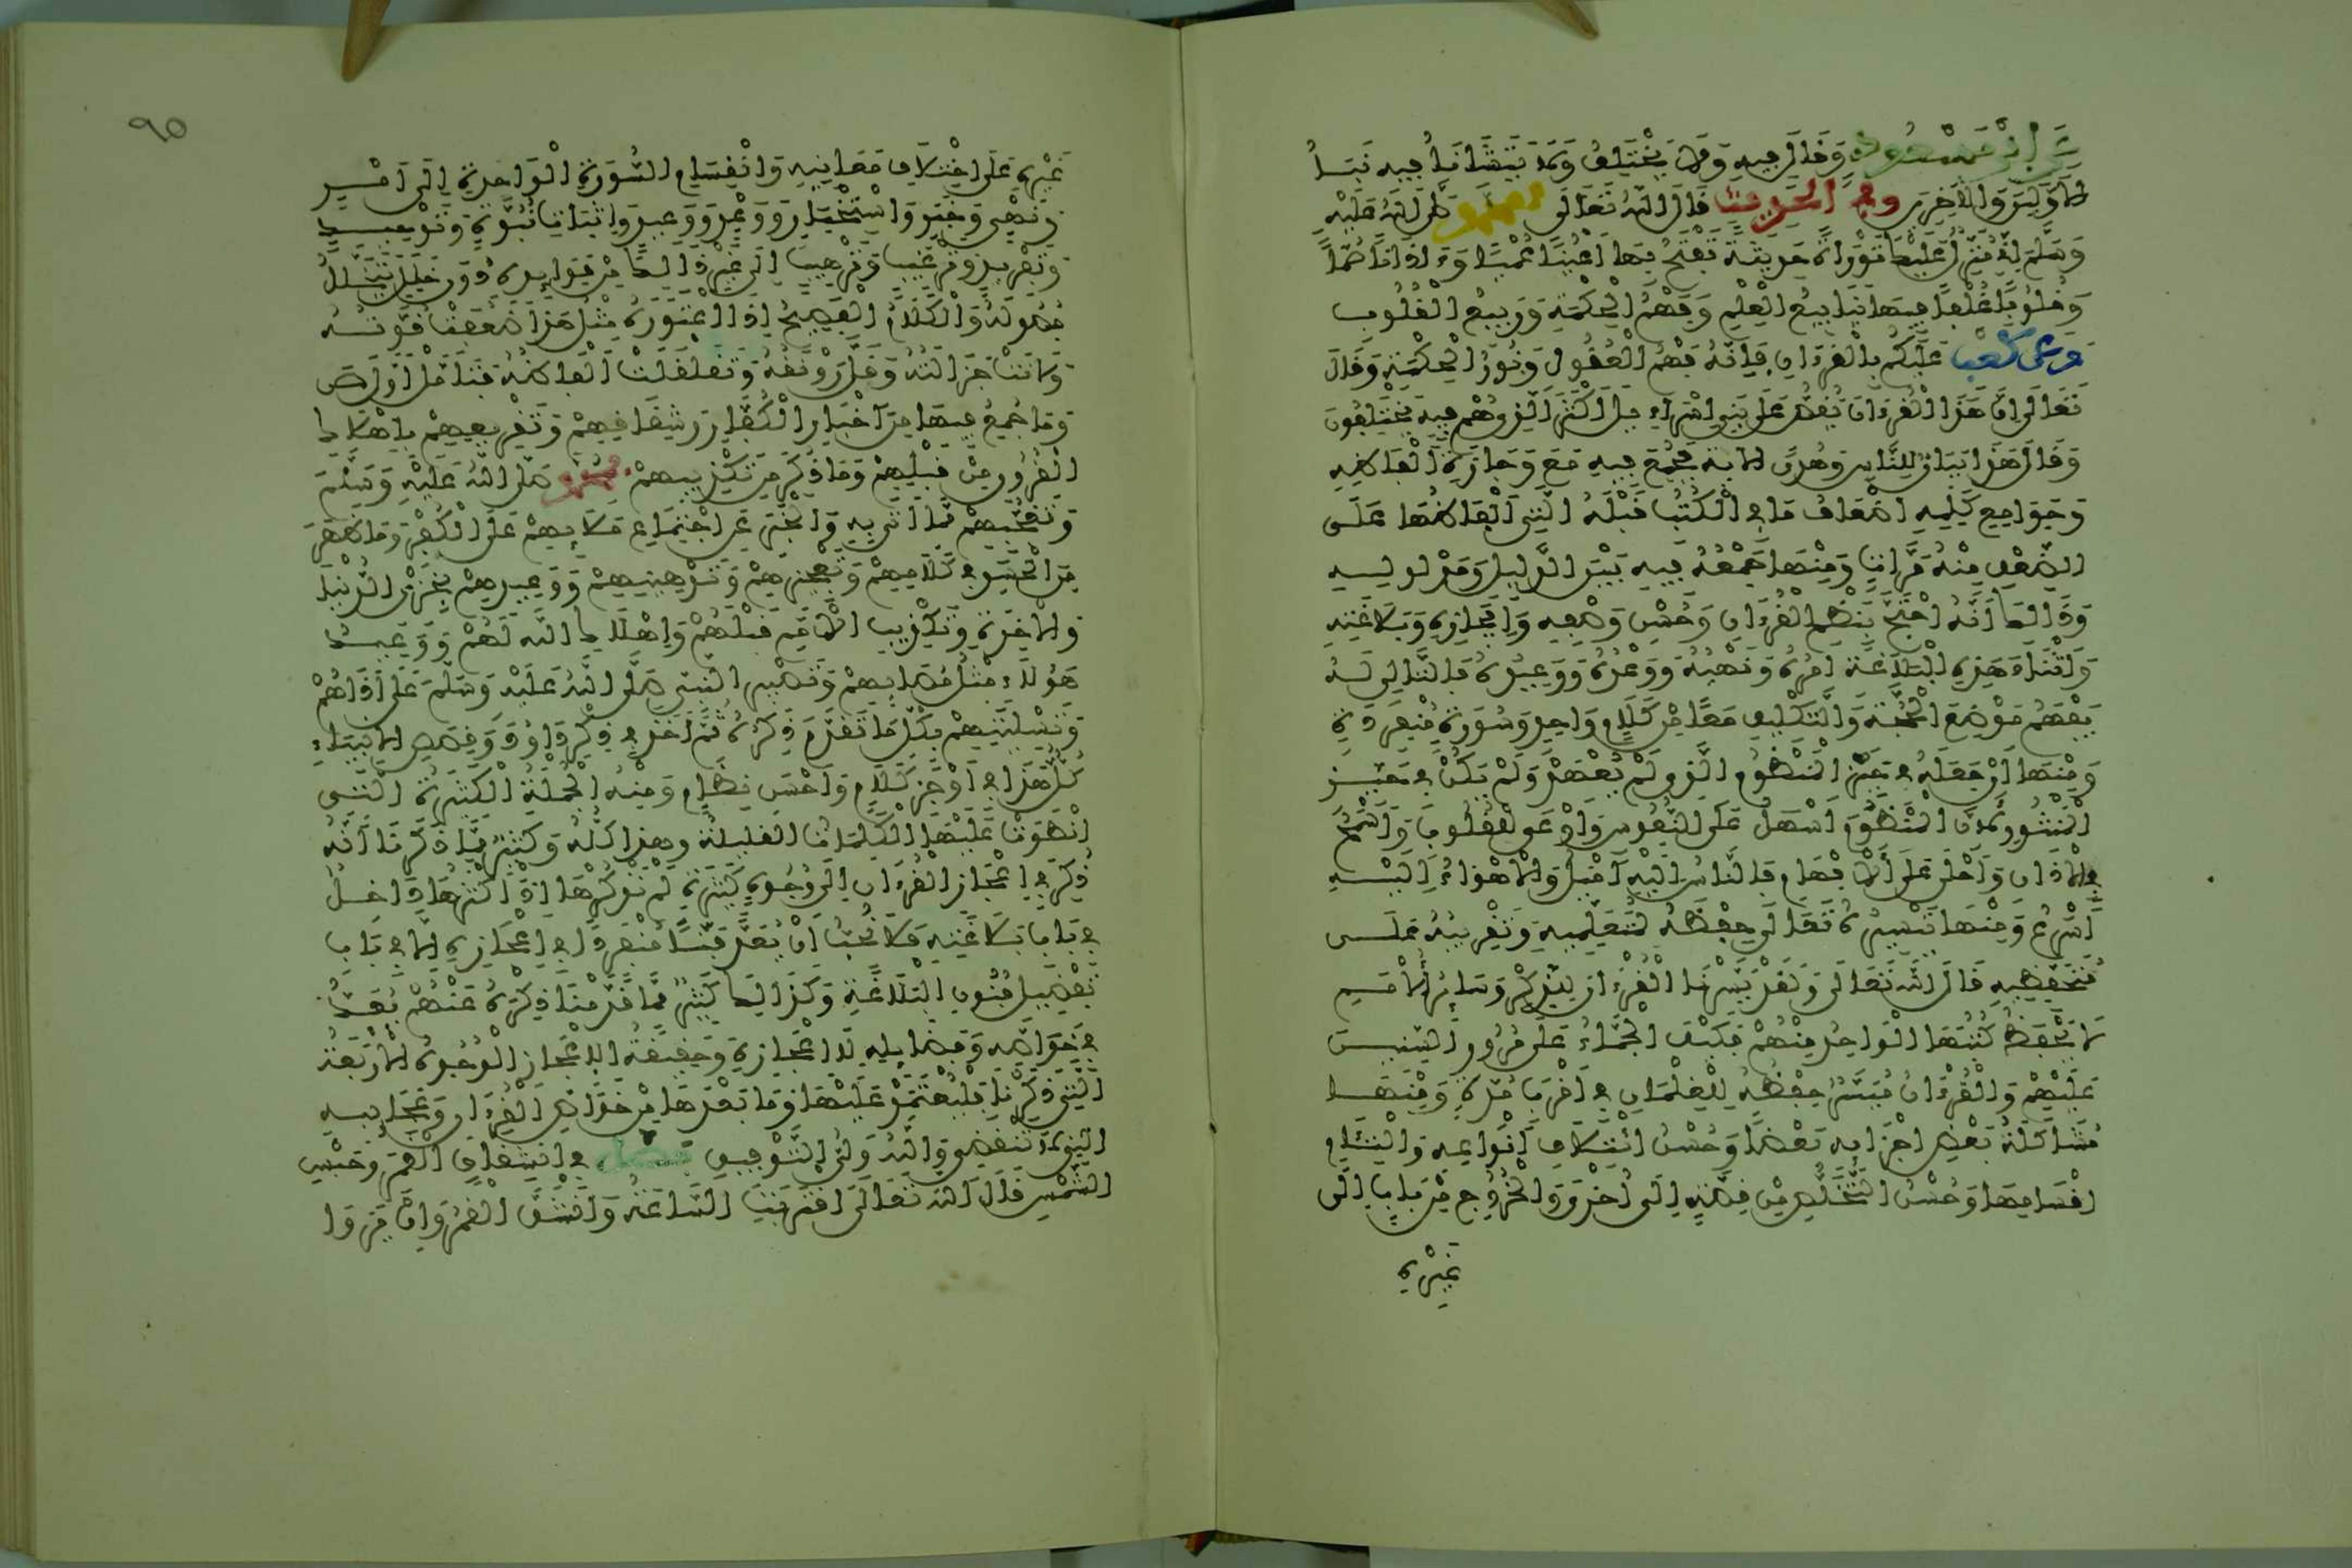 عَنِ ابْنِ مَسْعُودٍ وَقَالَ فِيهِ وَلَا يَخْتَلِفُ وَلَا يَتَشَانَأُ فِيهِ نَبَأُ
الْأَوَّلِينَ وَالْآخِرِينَ وفي الحديث قَالَ اللَّهُ تَعَالَى لمحمد صَلَّى اللَّهُ عَلَيْهِ
وَسَلَّمَ إِنِّي مُنَزِّلٌ عَلَيْكَ تَوْرَاةً حَدِيثَةً تَفْتَحُ بِهَا أَعْيُنًا عُمْيًا وَءَاذَانًا صُمًّا
وَقُلُوبًا غُلْفًا فِيهَا يَنَابِيعُ الْعِلْمِ وَفَهْمُ الْحِكْمَةِ وَرَبِيعُ الْقُلُوبِ
وَعَن كَعْبٍ عَلَيْكُمْ بِالْقُرْءَانِ فَإِنَّهُ فَهْمُ الْعُقُولِ وَنُورُ الْحِكْمَةِ وَقَالَ
تَعَالَى إِنَّ هَذَا الْقُرْءَانَ يَقُصُّ عَلَى بَنِي إِسْرَاءِيلَ أَكْثَرَ الَّذِي هُمْ فِيهِ يَخْتَلِفُونَ
وَقَالَ هَذَا بَيَانٌ لِلنَّاسِ وَهُدًى الاية فَجُمِعَ فِيهِ مَعَ وَجَازَةِ أَلْفَاظِهِ
وَجَوَامِعِ كَلِمِهِ أَضْعَافُ مَا فِي الْكُتُبِ قَبْلَهُ الَّتِي أَلْفَاظُهَا عَلَى
الضِّعْفِ مِنْهُ مَرَّاتٍ وَمِنْهَا جَمْعُهُ فِيهِ بَيْنَ الدَّلِيلِ وَمَدْلُولِهِ
وَذَالِكَ أَنَّهُ احْتَجَّ بِنَظْمِ الْقُرْءَانِ وَحُسْنِ وَصْفِهِ وَإِيجَازِهِ وَبَلَاغَتِهِ
وَأَثْنَاءَ هَذِهِ الْبَلَاغَةِ أَمْرُهُ وَنَهْيُهُ وَوَعْدُهُ وَوَعِيدُهُ فَالتَّالِي لَهُ
يَفْهَمُ مَوْضِعَ الْحُجَّةِ وَالتَّكْلِيفِ مَعًا مِنْ كَلَامٍ وَاحِدٍ وَسُورَةٍ مُنْفَرِدَةٍ
وَمِنْهَا أَنْ جَعَلَهُ فِي حَيِّزِ الْمَنْظُومِ الَّذِي لَمْ يُعْهَدْ وَلَمْ يَكُنْ فِي حَيِّزِ
الْمَنْثُورِ لِأَنَّ الْمَنْظُومَ أَسْهَلُ عَلَى النُّفُوسِ وَأَوْعَى لِلْقُلُوبِ وَأَسْمَحُ
فِي الْآذَانِ وَأَحْلَى عَلَى الْأَفْهَامِ فَالنَّاسُ إِلَيْهِ أَمْيَلُ وَالْأَهْوَاءُ إِلَيْهِ
أَسْرَعُ وَمِنْهَا تَيْسِيرُهُ تَعَالَى حِفْظَهُ لِمُتَعَلِّمِيهِ وَتَقْرِيبُهُ عَلَى
مُتَحَفِّظِيهِ قَالَ اللَّهُ تَعَالَى وَلَقَدْ يَسَّرْنَا الْقُرْءَانَ لِلذِّكْرِ وَسَائِرُ الْأُمَمِ
لَا يَحْفَظُ كُتُبَهَا الْوَاحِدُ مِنْهُمْ فَكَيْفَ الْجَمَّاءُ عَلَى مُرُورِ السِّنِينَ
عَلَيْهِمْ وَالْقُرْءَانُ مُيَسَّرٌ حِفْظُهُ لِلْغِلْمَانِ فِي أَقْرَبِ مُدَّةٍ وَمِنْهَا
مُشَاكَلَةُ بَعْضِ أَجْزَائِهِ بَعْضًا وَحُسْنُ ائْتِلَافِ أَنْوَاعِهِ وَالْتِئَامِ
أَقْسَامِهَا وَحُسْنُ التَّخَلُّصِ مِنْ قِصَّةٍ إِلَى أُخْرَى وَالْخُرُوجِ مِنْ بَابٍ إِلَى
غَيْرِهِ
٩٥
غَيْرِهِ عَلَى اخْتِلَافِ مَعَانِيهِ وَانْقِسَامِ السُّورَةِ الْوَاحِدَةِ إِلَى أَمْرٍ
وَنَهْيٍ وَخَبَرٍ وَاسْتِخْبَارٍ وَوَعْدٍ وَوَعِيدٍ وَإِثْبَاتِ نُبُوَّةٍ وَتَوْحِيدٍ
وَتَفْرِيدٍ وَتَرْغِيبٍ وَتَرْهِيبٍ إِلَى غَيْرِ ذَالِكَ مِنْ فَوَائِدِهِ دُونَ خَلَلٍ يَتَخَلَّلُ
فُصُولَهُ وَالْكَلَامُ الْفَصِيحُ إِذَا اعْتَوَرَهُ مِثْلُ هَذَا ضَعُفَتْ قُوَّتُهُ
وَلَانَتْ جَزَالَتُهُ وَقَلَّ رَوْنَقُهُ وَتَقَلْقَلَتْ أَلْفَاظُهُ فَتَأَمَّلْ أَوَّلَ ص
وَمَا جُمِعَ فِيهَا مِنْ أَخْبَارِ الْكُفَّارِ وَشِقَاقِهِمْ وَتَقْرِيعِهِمْ بِإِهْلَاكِ
الْقُرُونِ مِنْ قَبْلِهِمْ وَمَا ذُكِرَ مِنْ تَكْذِيبِهِمْ لمحمد صَلَّى اللَّهُ عَلَيْهِ وَسَلَّمَ
وَتَعَجُّبِهِمْ مِمَّا أَتَى بِهِ وَالْخَبَرِ عَنِ اجْتِمَاعِ مَلَئِهِمْ عَلَى الْكُفْرِ وَمَا ظَهَرَ
مِنَ الْحَسَدِ فِي كَلَامِهِمْ وَتَعْجِيزِهِمْ وَتَوْهِينِهِمْ وَوَعِيدِهِمْ بِخِزْيِ الدُّنْيَا
وَالْآخِرَةِ وَتَكْذِيبِ الْأُمَمِ قَبْلَهُمْ وَإِهْلَاكِ اللَّهِ لَهُمْ وَوَعِيدِ
هَؤُلَاءِ مِثْلَ مُصَابِهِمْ وَتَصْبِيرِ النَّبِيِّ صَلَّى اللَّهُ عَلَيْهِ وَسَلَّمَ عَلَى أَذَاهُمْ
وَتَسْلِيَتِهِمْ بِكُلِّ مَا تَقَدَّمَ ذِكْرُهُ ثُمَّ أَخَذَ فِي ذِكْرِ دَاوُودَ وَقِصَصِ الْأَنْبِيَاءِ
كُلُّ هَذَا فِي أَوْجَزِ كَلَامٍ وَأَحْسَنِ نِظَامٍ وَمِنْهُ الْجُمْلَةُ الْكَثِيرَةُ الَّتِي
انْطَوَتْ عَلَيْهَا الْكَلِمَاتُ الْقَلِيلَةُ وهذا كُلُّهُ وَكَثِيرٌ مِمَّا ذَكَرْنَا أَنَّهُ
ذُكِرَ فِي إِعْجَازِ الْقُرْءَانِ إِلَى وُجُوهٍ كَثِيرَةٍ لَمْ نَذْكُرْهَا إِذْ أَكْثَرُهَا دَاخِلٌ
فِي بَابِ بَلَاغَتِهِ فَلَا نُحِبُّ أَنْ يُعَدَّ فَنًّا مُنْفَرِدًا فِي إِعْجَازِهِ إِلَّا فِي بَابِ
تَفْضِيلِ فُنُونِ الْبَلَاغَةِ وَكَذَالِكَ كَثِيرٌ مِمَّا قَدَّمْنَا ذِكْرَهُ عَنْهُمْ يُعَدُّ
فِي خَوَاصِّهِ وَفَضَائِلِهِ لَا إِعْجَازِهِ وَحَقِيقَةُ الْإِعْجَازِ الْوُجُوهُ الْأَرْبَعَةُ
الَّتِي ذَكَرْنَا فَلْيُعْتَمَدْ عَلَيْهَا وَمَا بَعْدَهَا مِنْ خَوَاصِّ الْقُرْءَانِ وَعَجَائِبِهِ
الَّتِي لَا تَنْقَضِي وَاللَّهُ وَلِيُّ التَّوْفِيقِ فصل فِي انْشِقَاقِ الْقَمَرِ وَحَبْسِ
الشَّمْسِ قَالَ اللَّهُ تَعَالَى اقْتَرَبَتِ السَّاعَةُ وَانْشَقَّ الْقَمَرُ وَإِنْ يَرَوْا